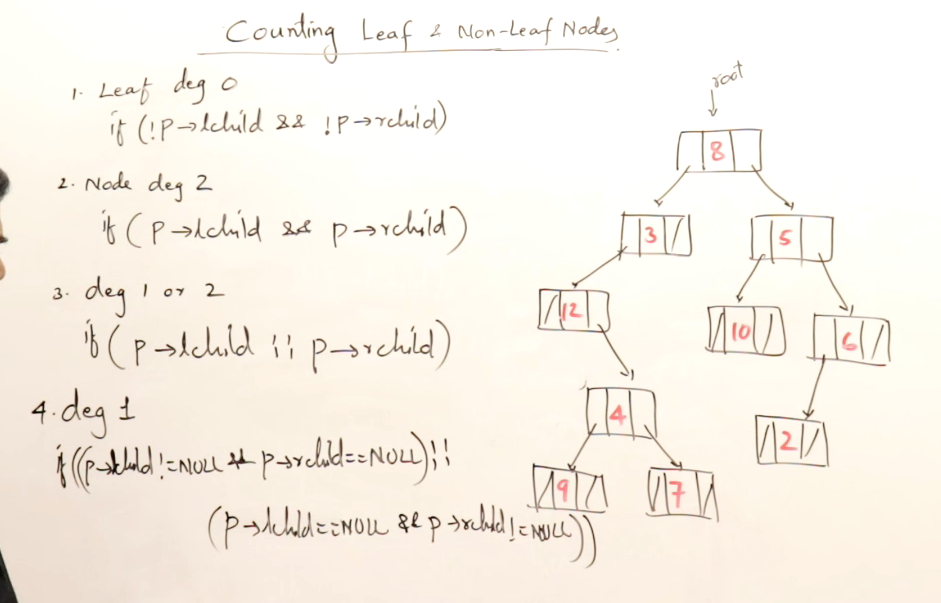 Counting Leaf & Non-Leaf Nodes
1. Leaf deg 0
if (!p→lchild && !p→rchild)
2. Node deg 2
if (p→lchild && p→rchild)
3. deg 1 or 2
if (p→lchild || p→rchild)
4. deg 1
if ((p→lchild!=NULL && p→rchild==NULL)||
(p→lchild==NULL && p→rchild!=NULL))
root
8
3 5
12 10 6
4 2
9 7